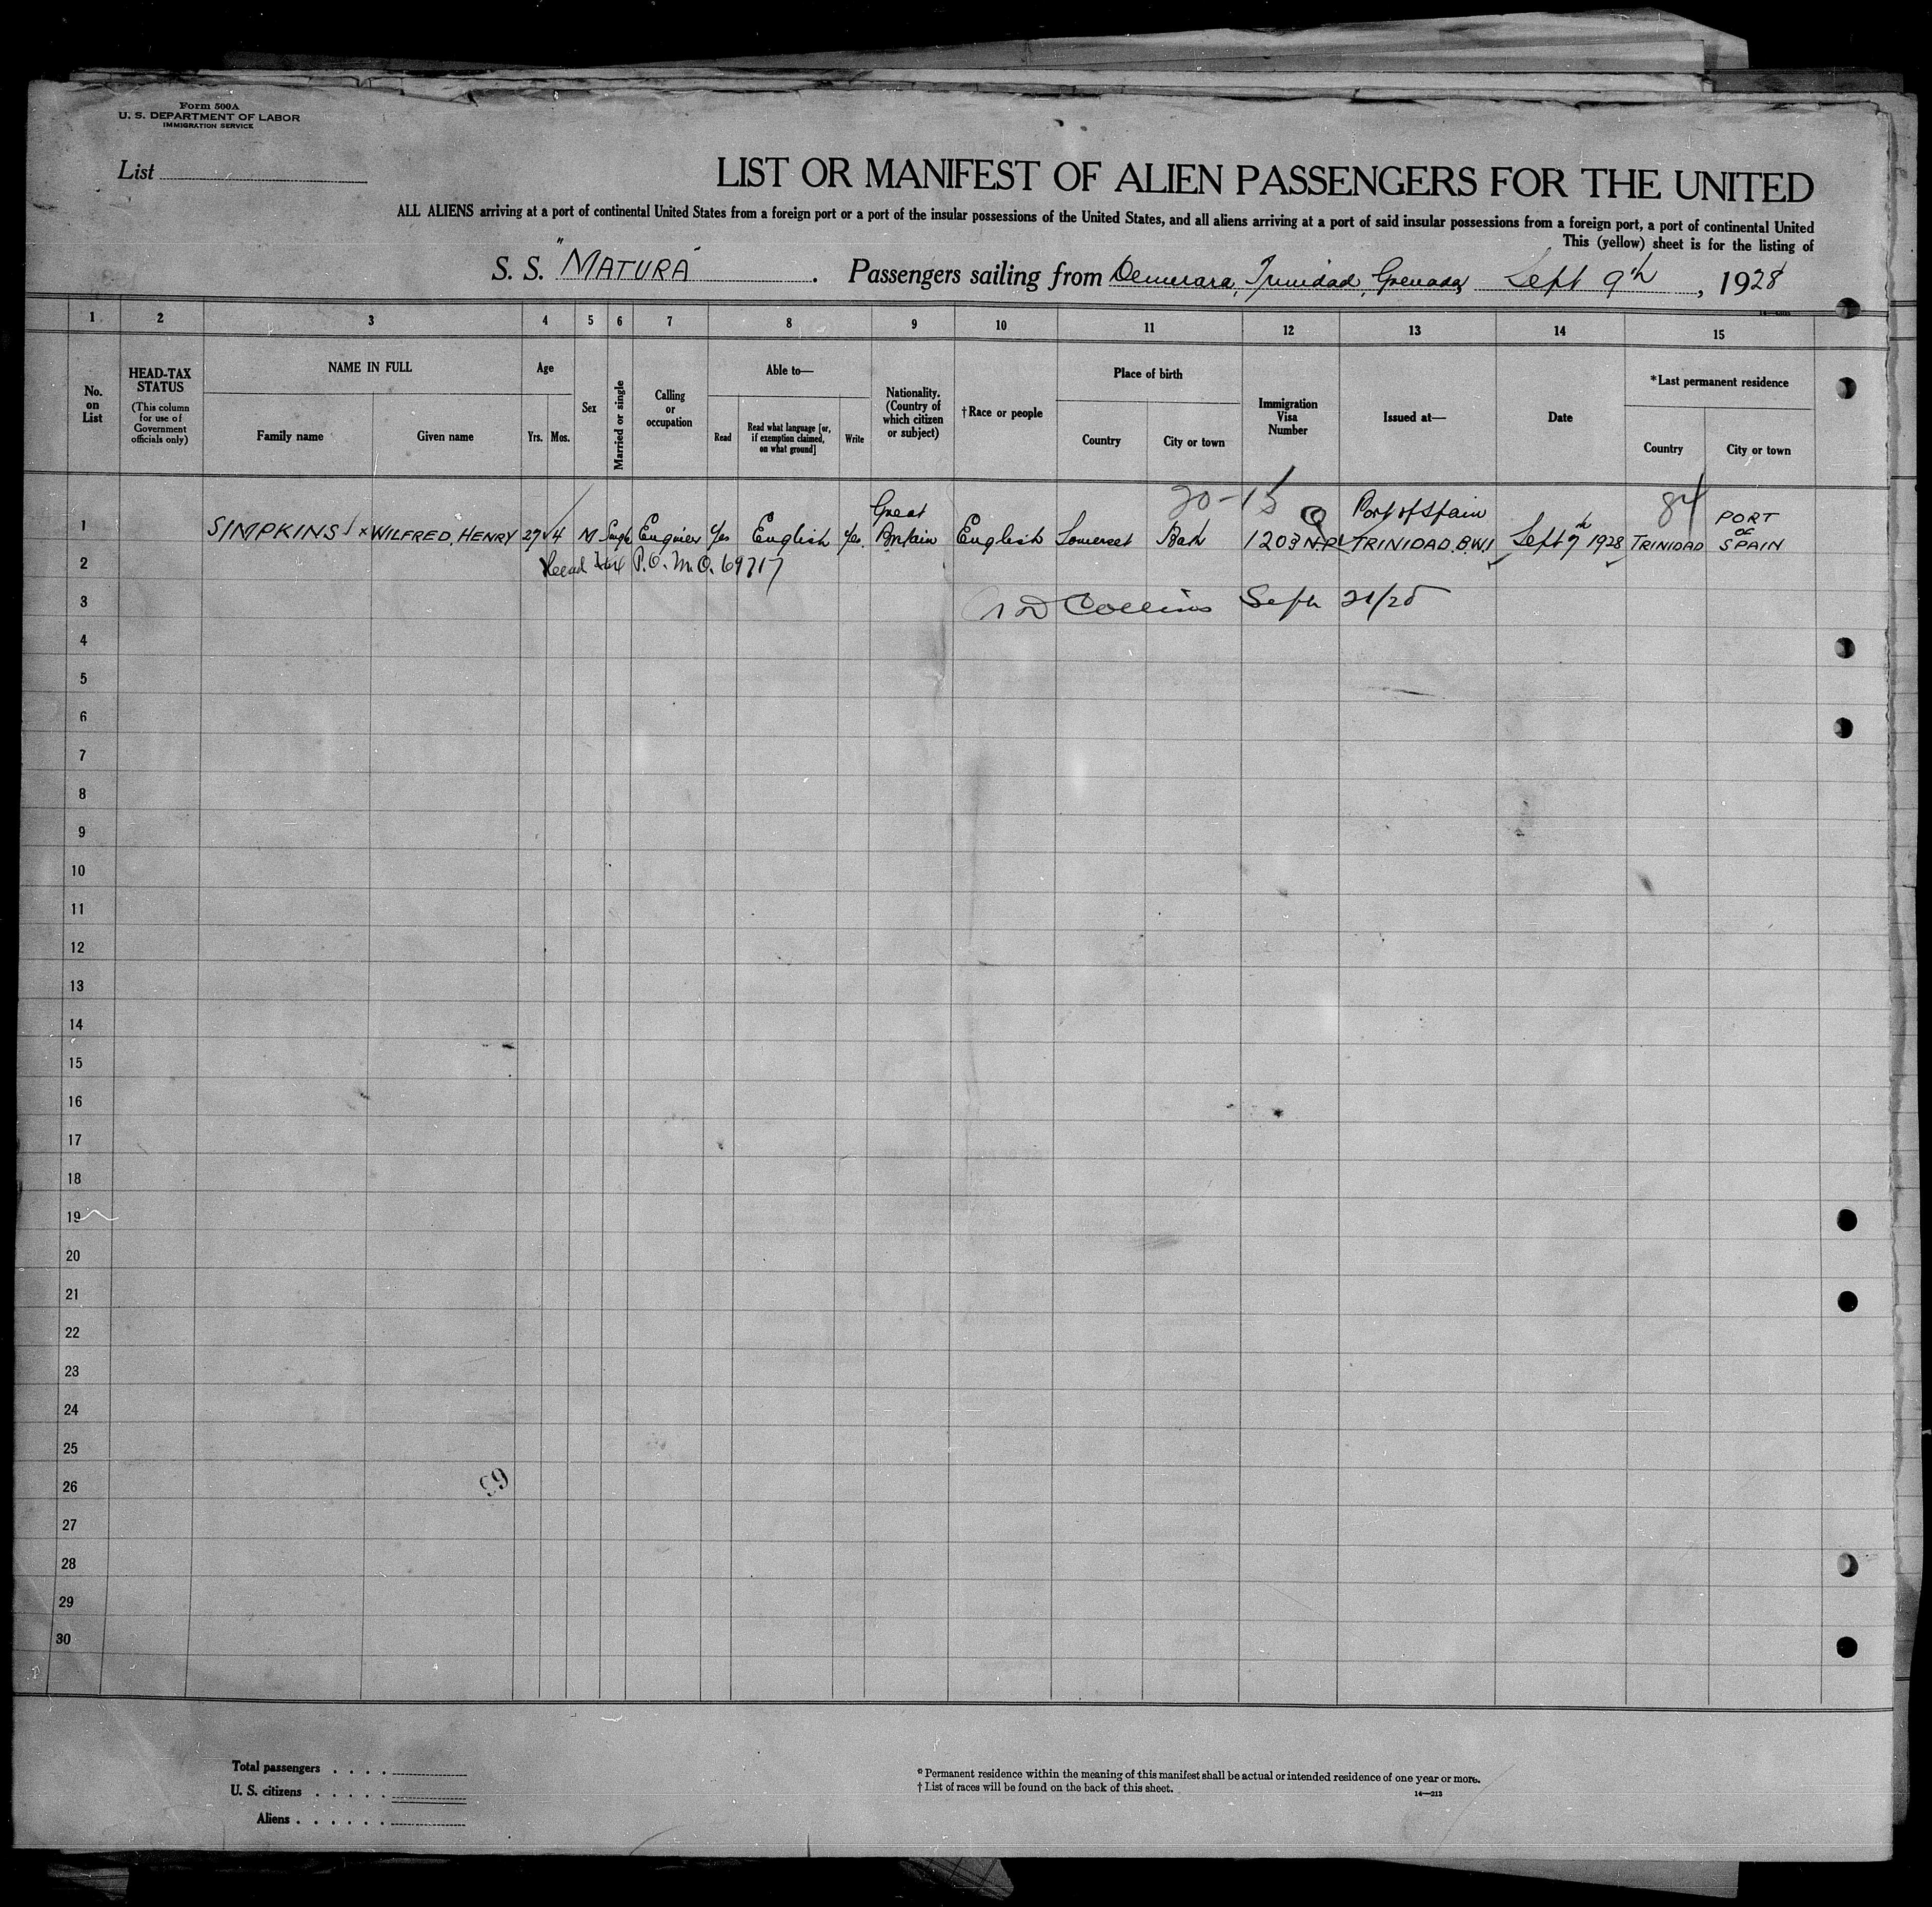 Form 500A
U. S. DEPARTMENT OF LABOR
IMMIGRATION SERVICE
List
LIST OR MANIFEST OF ALIEN PASSENGERS FOR THE UNITED
ALL ALIENS arriving at a port of continental United States from a foreign port or a port of the insular possessions of the United States, and all aliens arriving at a port of said insular possessions from a foreign port, a port of continental United
This (yellow) sheet is for the listing of
S. S. "MATURA". Passengers sailing from Demerara, Trinidad, Grenada, Sept 9th, 1928
1 2 3 4 5 6 7 8 9 10 11 12 13 14 15
No. on List
HEAD-TAX STATUS
(This column for use of Government officials only)
NAME IN FULL
Family name Given name
Age
Yrs. Mos.
Sex
Married or single
Calling or occupation
Able to—
Read
Read what language [or, if exemption claimed, on what ground]
Write
Nationality. (Country of which citizen or subject)
†Race or people
Place of birth
Country City or town
Immigration Visa Number
Issued at—
Date
*Last permanent residence
Country City or town
20-15 84
1 SIMPKINS x WILFRED, HENRY 27 4 M Single Engineer Yes English Yes Great Britain English Somerset Bath 1203 Port of Spain TRINIDAD, B.W.I Sept 7th 1928 TRINIDAD PORT OF SPAIN
2 Head tax P.O. M.O. 69717
3 Collins Sept 21/28
4
5
6
7
8
9
10
11
12
13
14
15
16
17
18
19
20
21
22
23
24
25
26
27
28
29
30
Total passengers . . . .
U. S. citizens . . . . .
Aliens . . . . . .
* Permanent residence within the meaning of this manifest shall be actual or intended residence of one year or more.
† List of races will be found on the back of this sheet.
14—213